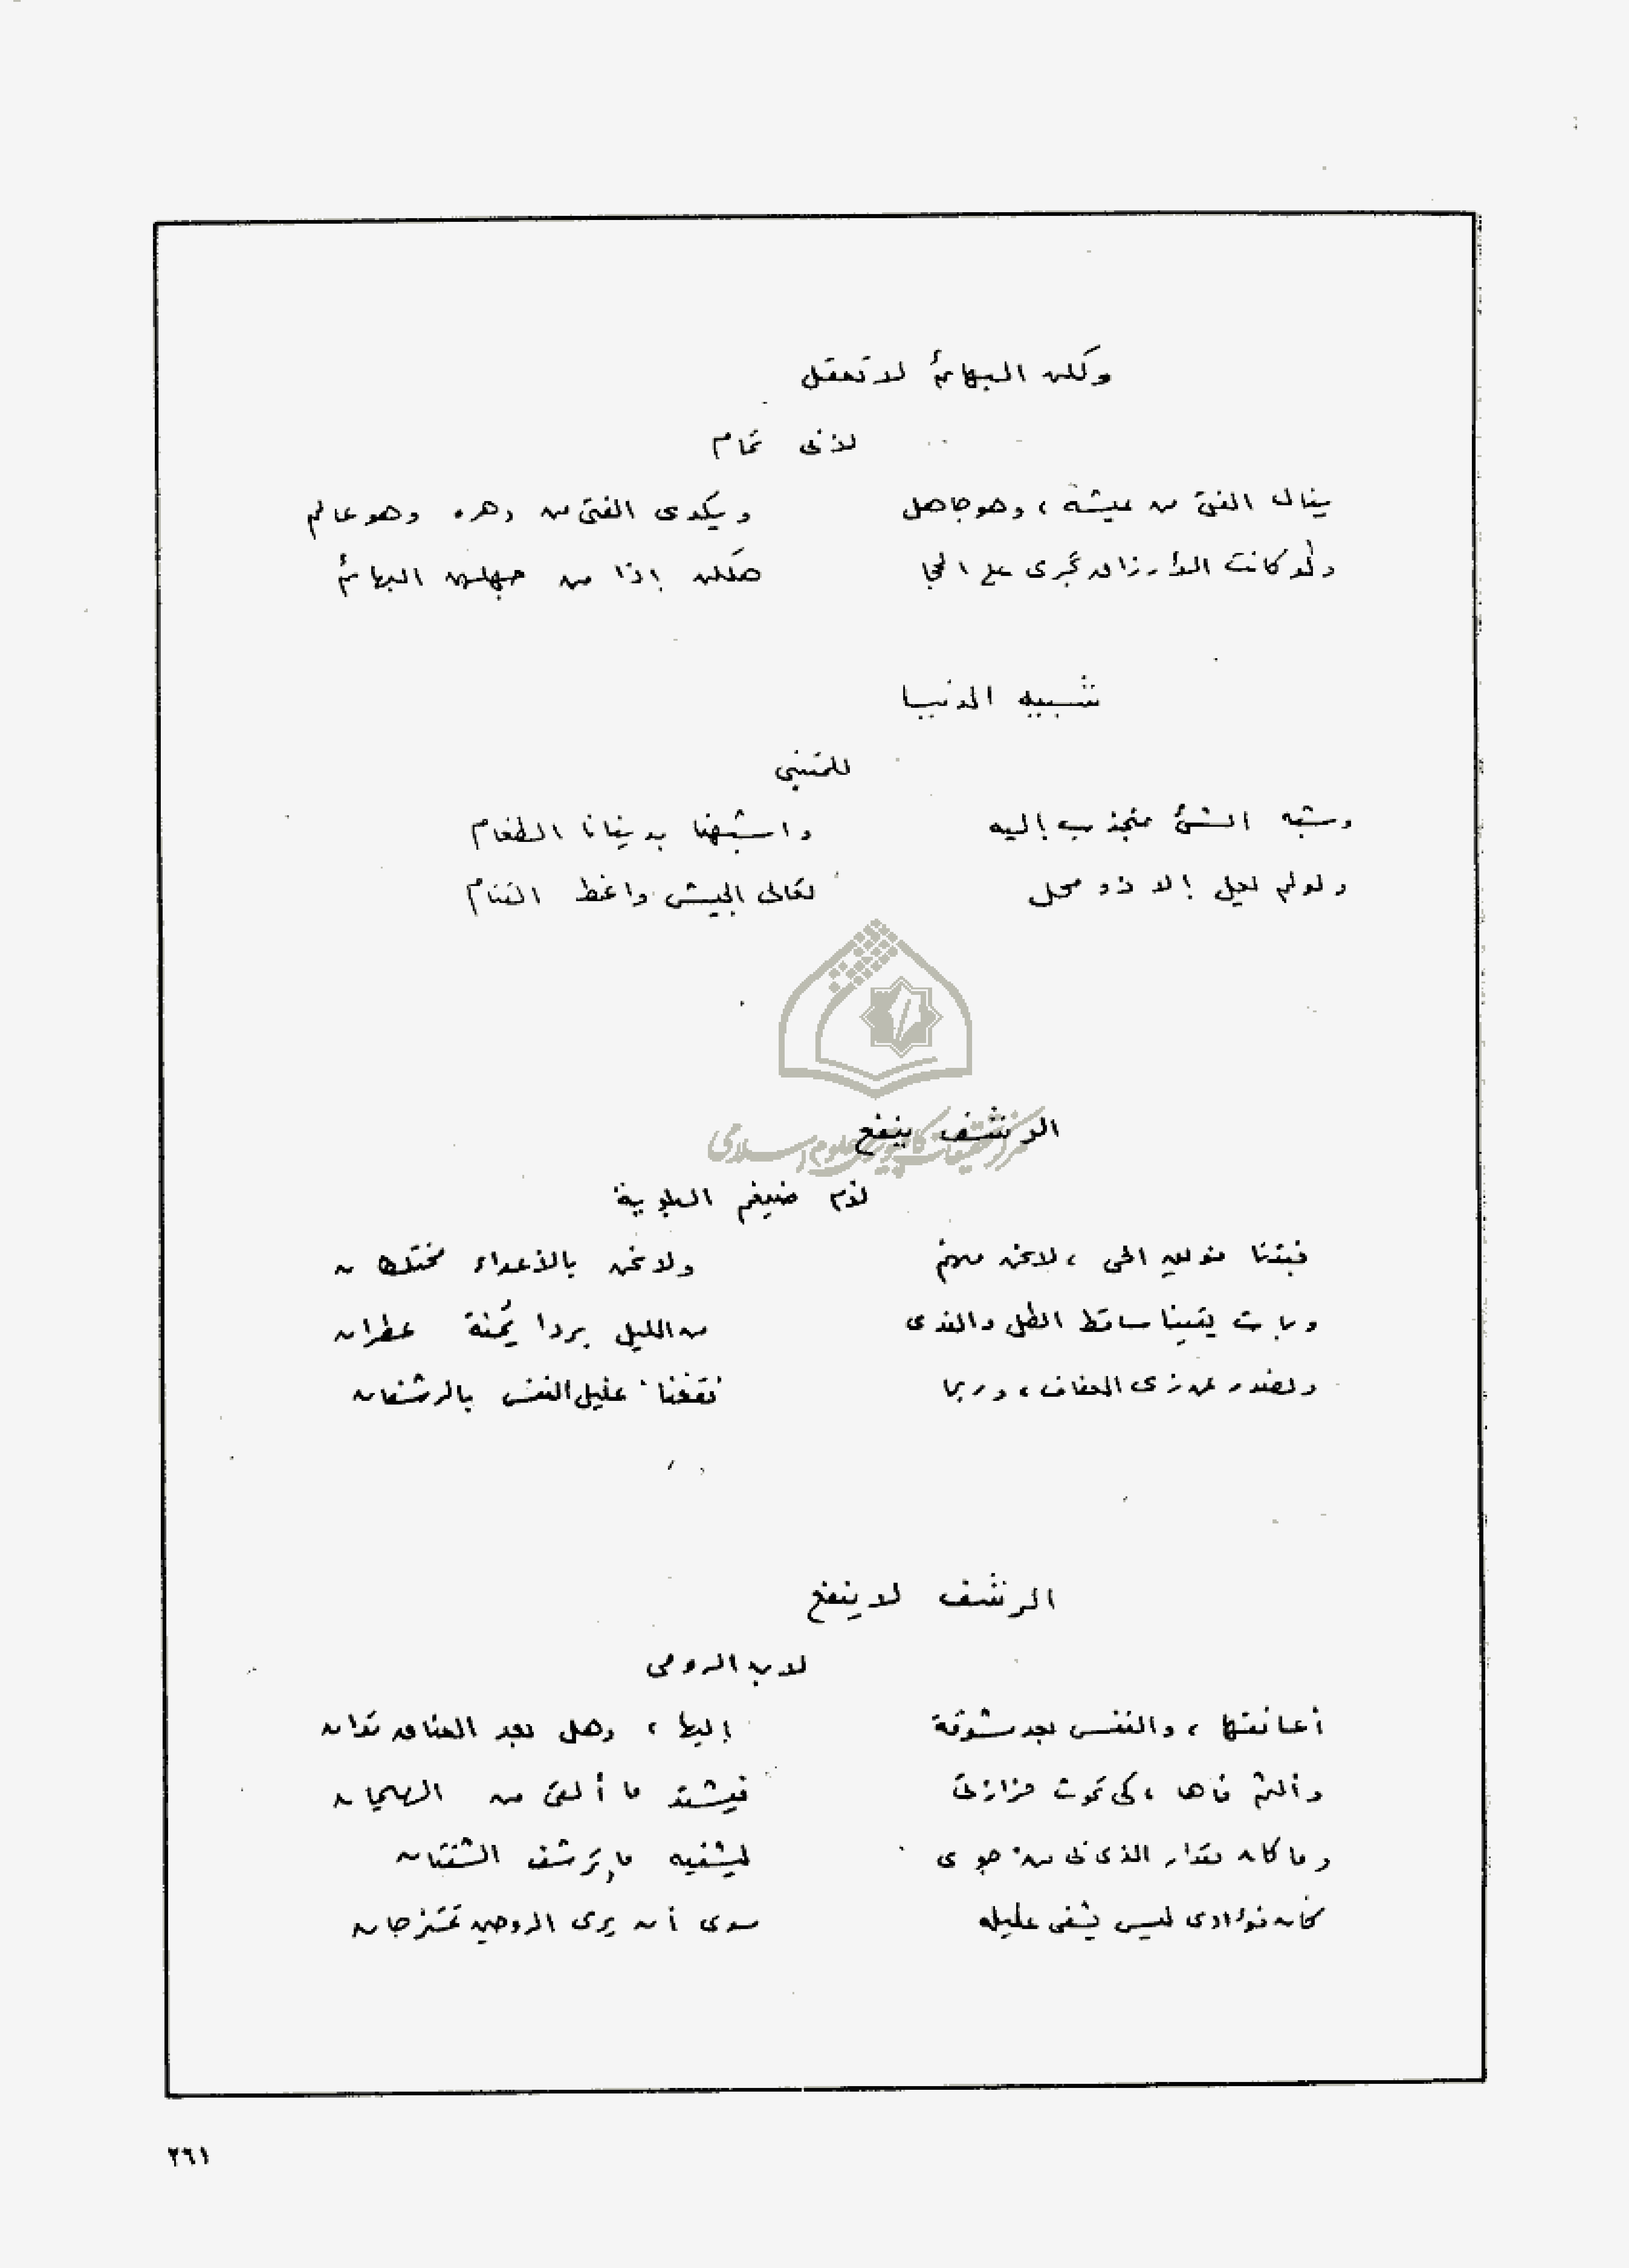 وكلن البهائم لا تعقل
لأبى تمام
ينال الفتى من عيشه ، وهو جاهل ويكدى الفتى من دهره وهو عالم
ولو كانت الأرزاق تجرى على الحجا هلكن إذا من جهلهن البهائم
شبيه الدنيا
للمتنبي
وشبه الشئ منجذب إليه واشبهنا بدنيانا الطغام
ولو لم يعل إلا ذو محل تعالى الجيش وانحط القتام
الرشف ينفع
لأم ضيغم البلوية
فبتنا فويق الحى ، لا نحن منهم ولا نحن بالأعداء مختلطان
وبات يقينا ساقط الطل والندى من الليل بردا يُمنة عطران
ونصدر عن رى العفاف ، وربما نقعنا غليل النفس بالرشفان
الرشف لا ينفع
لابن الرومى
أعانقها ، والنفس بعد مشوقة إليها ، وهل بعد العناق تدان
وألثم فاها ، كى تموت حزازتى فيشتد ما ألقى من الهيمان
وما كان مقدار الذى بى من جوى ليشفيه ما ترشف الشفتان
كأن فؤادى ليس يشفى غليله سوى أن يرى الروحين تمتزجان
مركز تحقيقات كامپيوترى علوم اسلامى
٢٦١